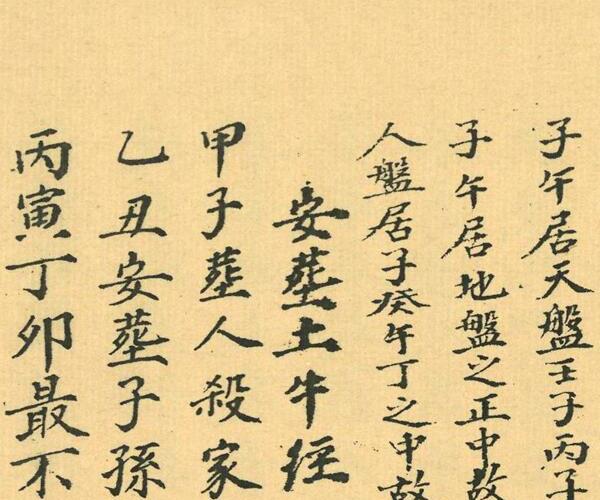 子午居天盤壬子丙子
子午居地盤之正中故
人盤居子癸午丁之中故
安塟土牛徑
甲子塟人殺家
乙丑安塟子孫
丙寅丁卯最不